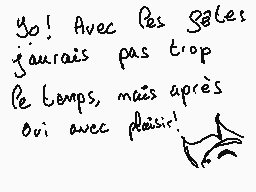 Yo! Avec les gates
j'aurais pas trop
le temps, mais après
oui avec plaisir!